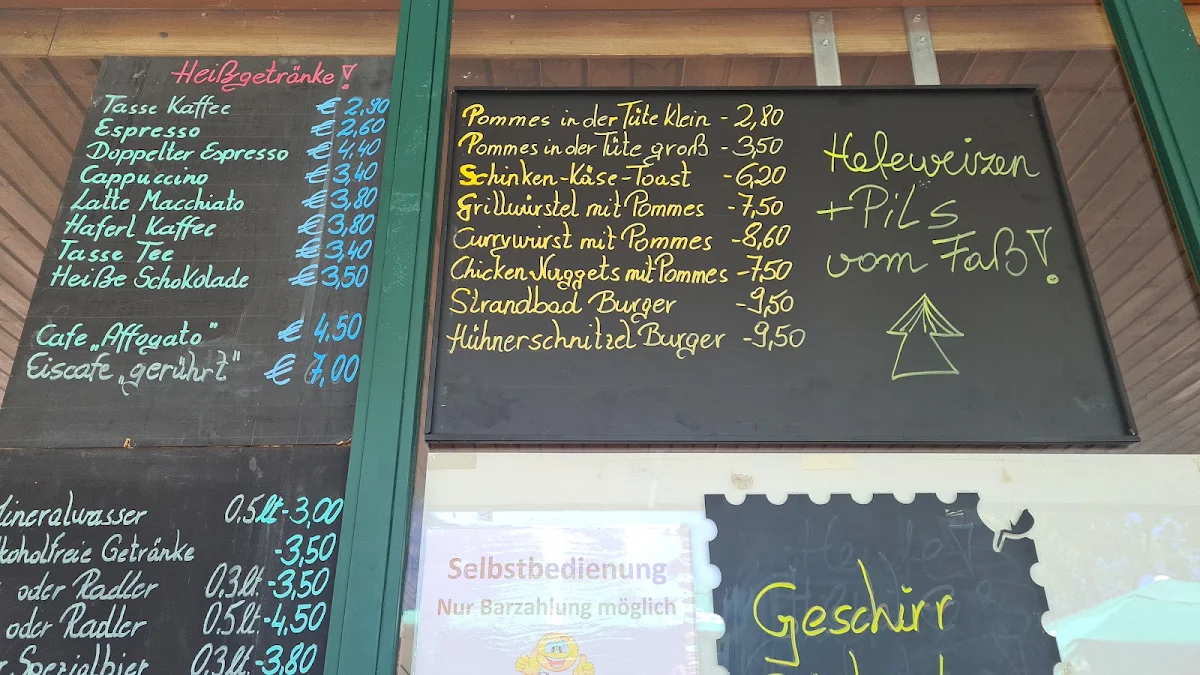 Heißgetränke!
Tasse Kaffee € 2,90
Espresso € 2,60
Doppelter Espresso € 4,40
Cappuccino € 3,40
Latte Macchiato € 3,80
Haferl Kaffee € 3,80
Tasse Tee € 3,40
Heiße Schokolade € 3,50
Cafe „Affogato" € 4,50
Eiscafe „gerührt" € 7,00
Mineralwasser 0.5lt - 3,00
Getränke - 3,50
oder Radler 0.3lt. - 3,50
oder Radler 0.5lt. - 4,50
Spezialbier 0.3lt. - 3,80
Pommes in der Tüte klein - 2,80
Pommes in der Tüte groß - 3,50
Schinken-Käse-Toast - 6,20
Grillwürstel mit Pommes - 7,50
Currywurst mit Pommes - 8,60
Chicken Nuggets mit Pommes - 7,50
Strandbad Burger - 9,50
Hühnerschnitzel Burger - 9,50
Hefeweizen
+ Pils
vom Faß!
Selbstbedienung
Nur Barzahlung möglich
Geschirr